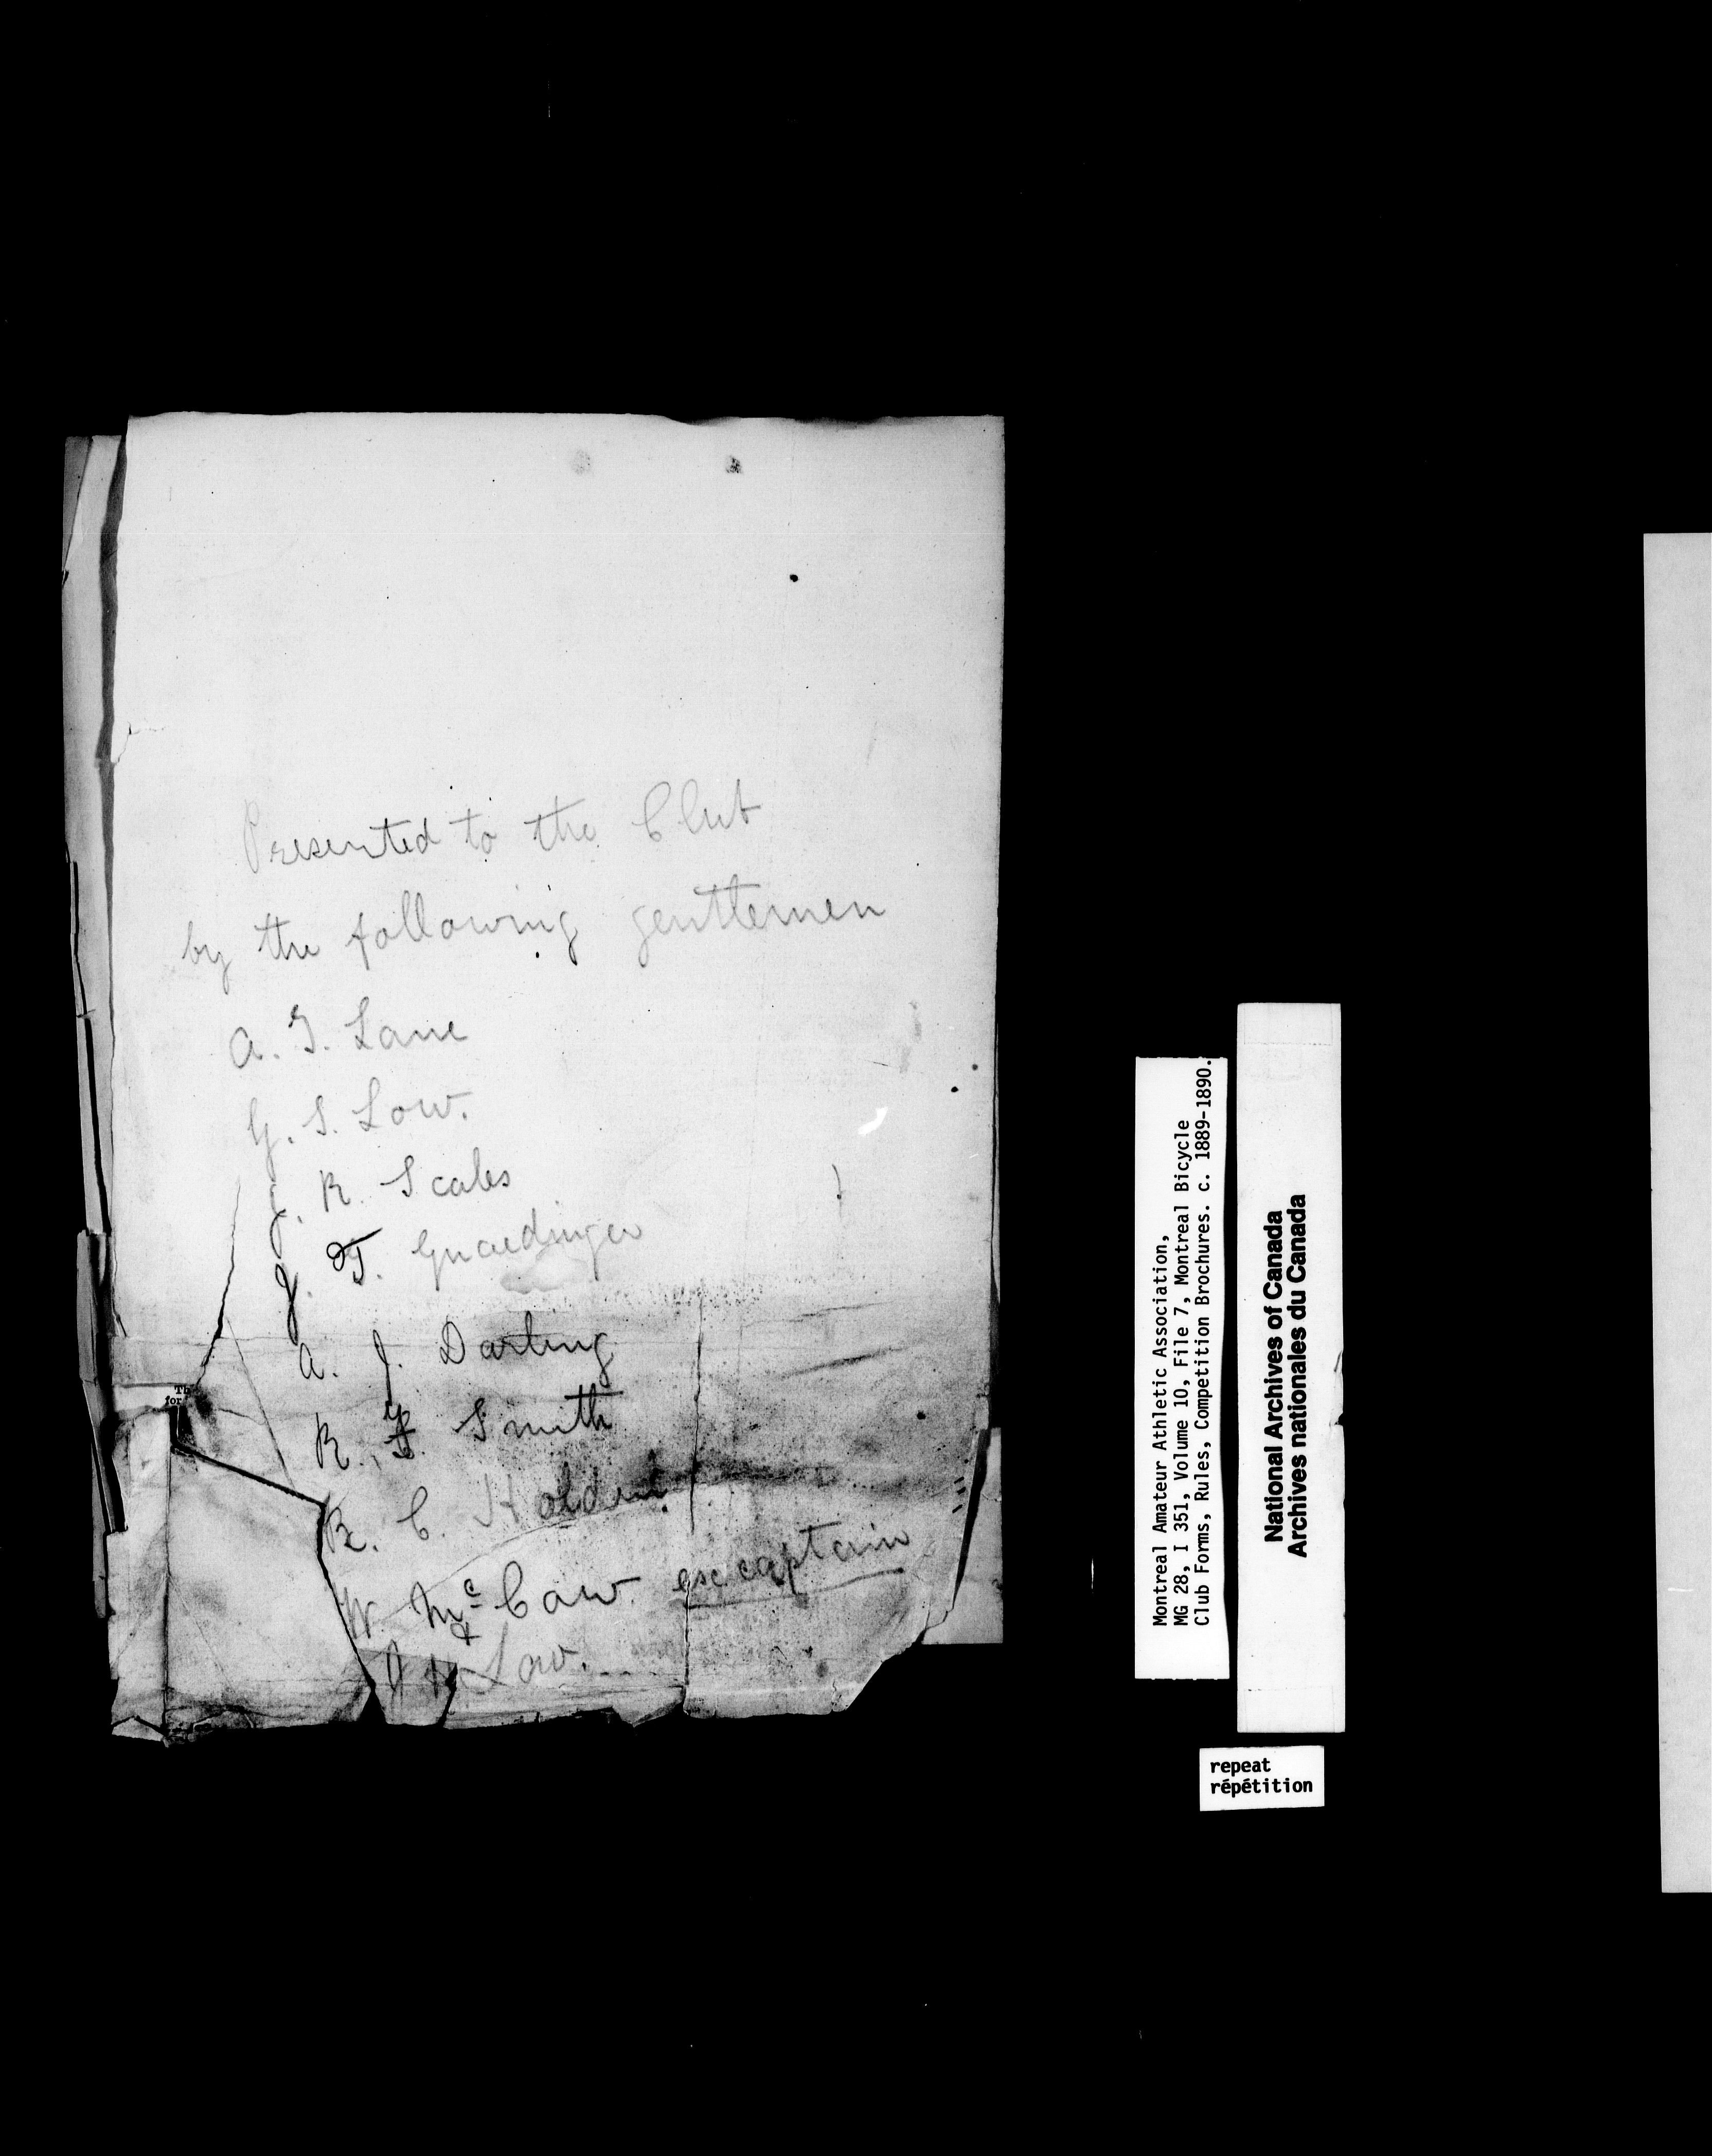 Presented to the Club
by the following gentlemen
A. T. Lane
G. S. Low.
J. R. Scales
J. T. Gnaedinger
A. J. Darling
R. Smith
R. C. Holden
W. McCaw. ex captain
J Low.
Th
for
Montreal Amateur Athletic Association,
MG 28, I 351, Volume 10, File 7, Montreal Bicycle
Club Forms, Rules, Competition Brochures. c. 1889-1890.
National Archives of Canada
Archives nationales du Canada
repeat
répétition